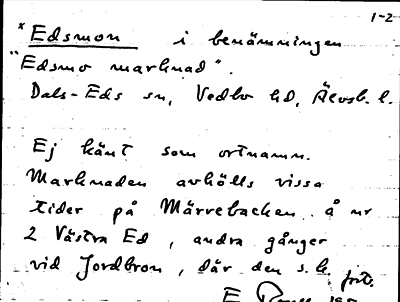 1-2
*Edsmon i benämningen
"Edsmo marknad".
Dals-Eds sn, Vedbo hd, Älvsb. l.
Ej känt som ortnamn.
Marknaden avhölls vissa
tider på Märrebacken å nr
2 Västra Ed, andra gånger
vid Jordbron, där den s. k.
forts.
E